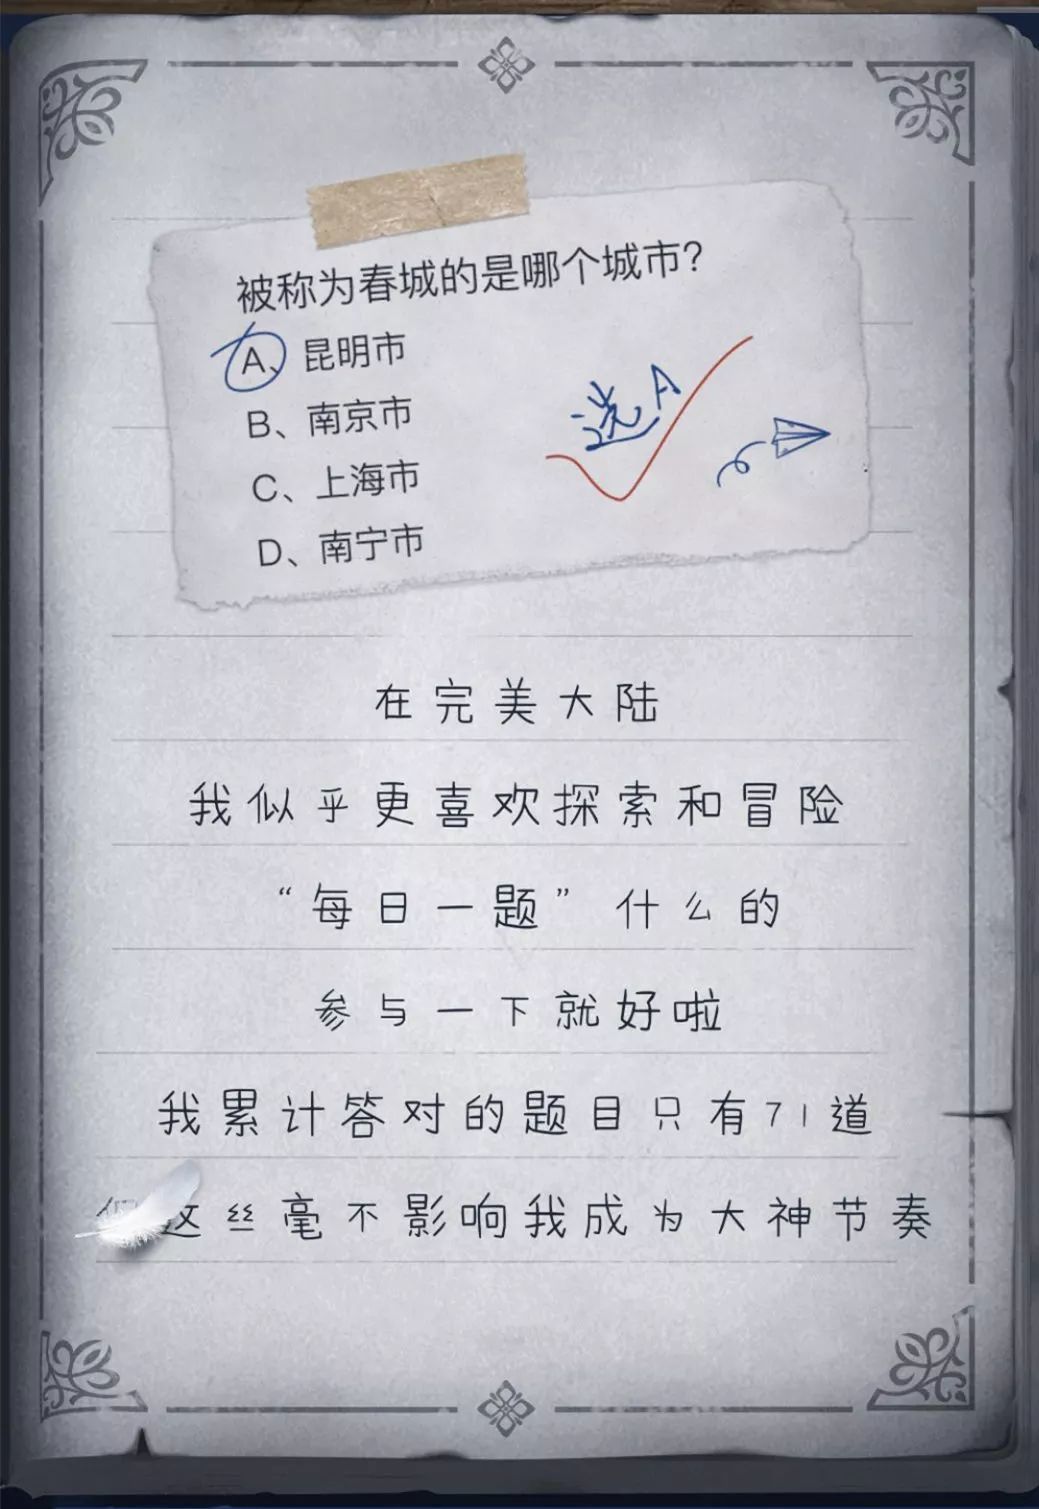 被称为春城的是哪个城市?
A、昆明市
B、南京市
C、上海市
D、南宁市
选A
在完美大陆
我似乎更喜欢探索和冒险
“每日一题”什么的
参与一下就好啦
我累计答对的题目只有71道
这丝毫不影响我成为大神节奏